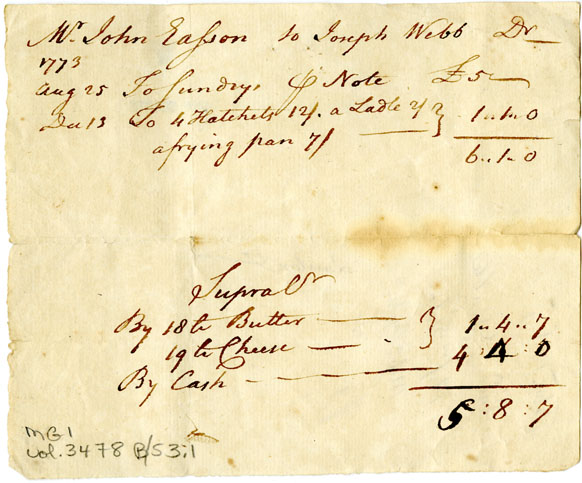 Mr John Easson to Joseph Webb Dr
1773
Aug 25 To Sundrys ⅌ Note £5
13 To 4 Hatchets 12/. a Ladle 2/ } 1..1..0
a frying pan 7/
6..1..0
Supra Cr
By 18 lb Butter } 1..4..7
19 lb Cheese
By Cash 4:4:0
5:8:7
MG1
vol. 3478 B/53:1